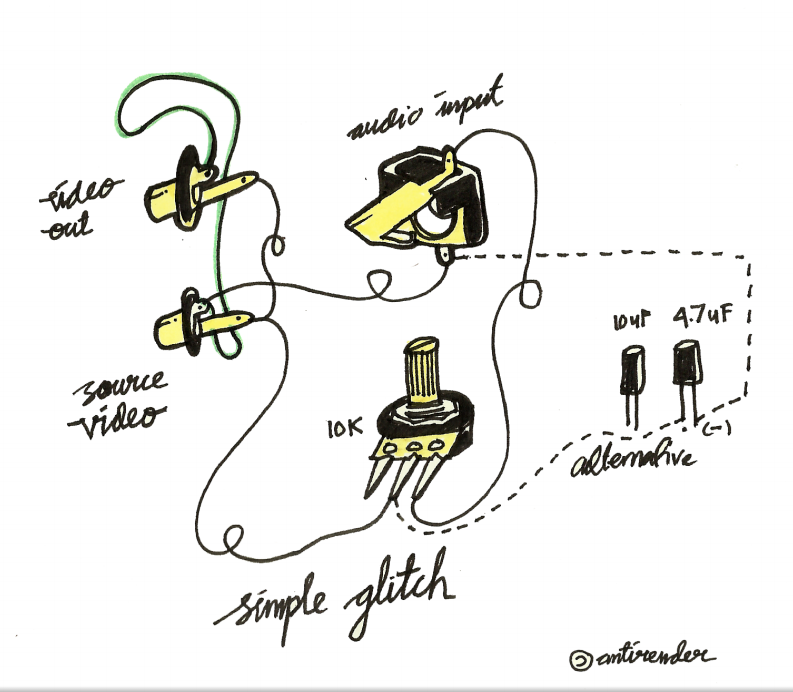 audio input
video
out
10uF 4.7uF
source
video
10K
(-)
alternative
simple glitch
© antirender